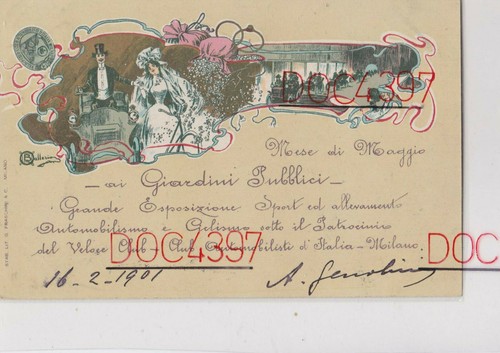 DOC4397
Mese di Maggio
— ai Giardini Pubblici —
Grande Esposizione Sport ed allevamento
Automobilismo e Ciclismo sotto il Patrocinio
del Veloce Club – Club Automobilisti d'Italia – Milano.
DOC4397
DOC
16-2-1901
A.